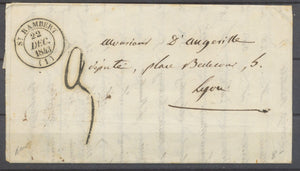 ST RAMBERT
22
DEC.
(1)
Monsieur D'angeville
Député, place Bellecour, 5.
Lyon